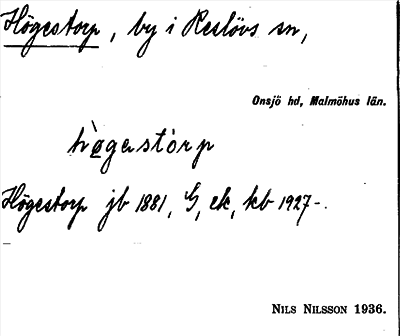 Högestorp, by i Reslövs sn,
Onsjö hd, Malmöhus län.
hø̀gastòrp
Högestorp jb 1881, G, ek, kb 1927-.
NILS NILSSON 1936.